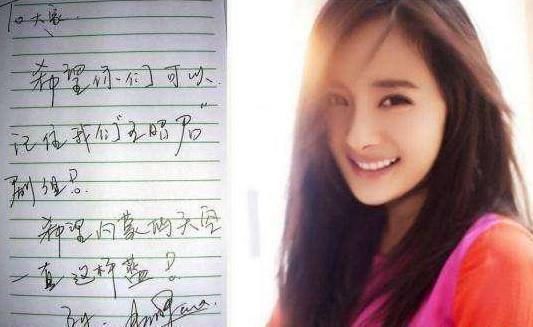 To大家:
希望你们可以
记住我们"王昭君"
剧组!
希望内蒙的天空
一直这样蓝!
By.